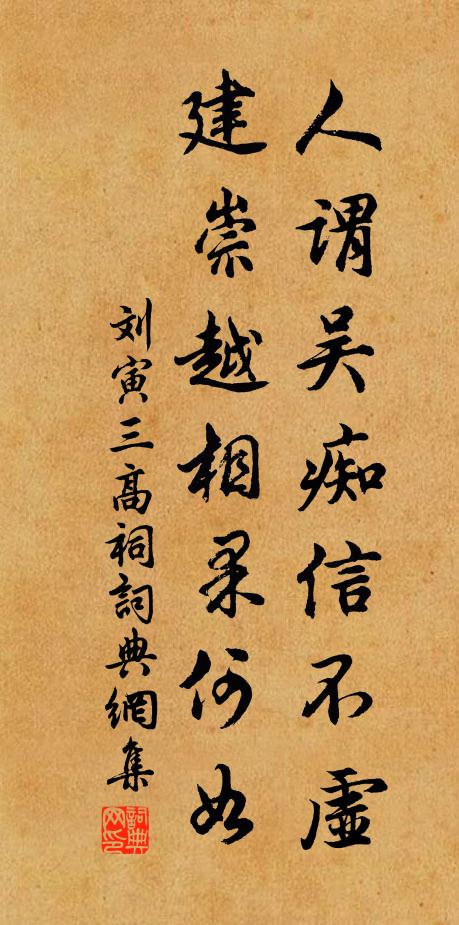 人谓吴痴信不虚
建崇越相果何如
刘寅三高祠詞典網集
詞典网印